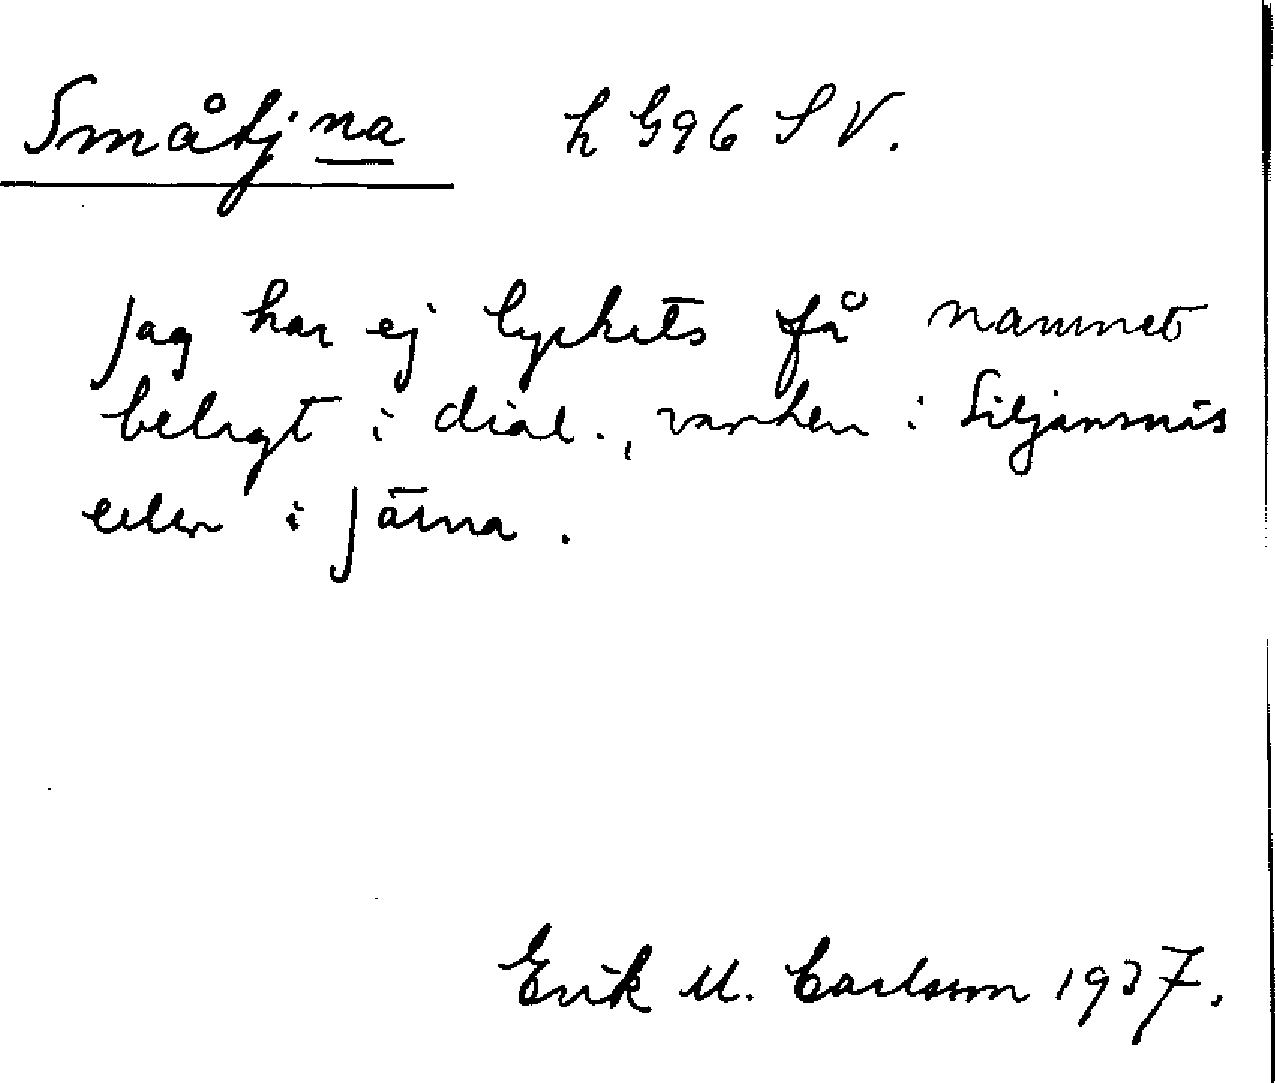 Småtjna h G96 SV.
Jag har ej lyckats få namnet
belagt i dial., varken i Siljansnäs
eller i Järna.
Erik M. Carlsson 1937.